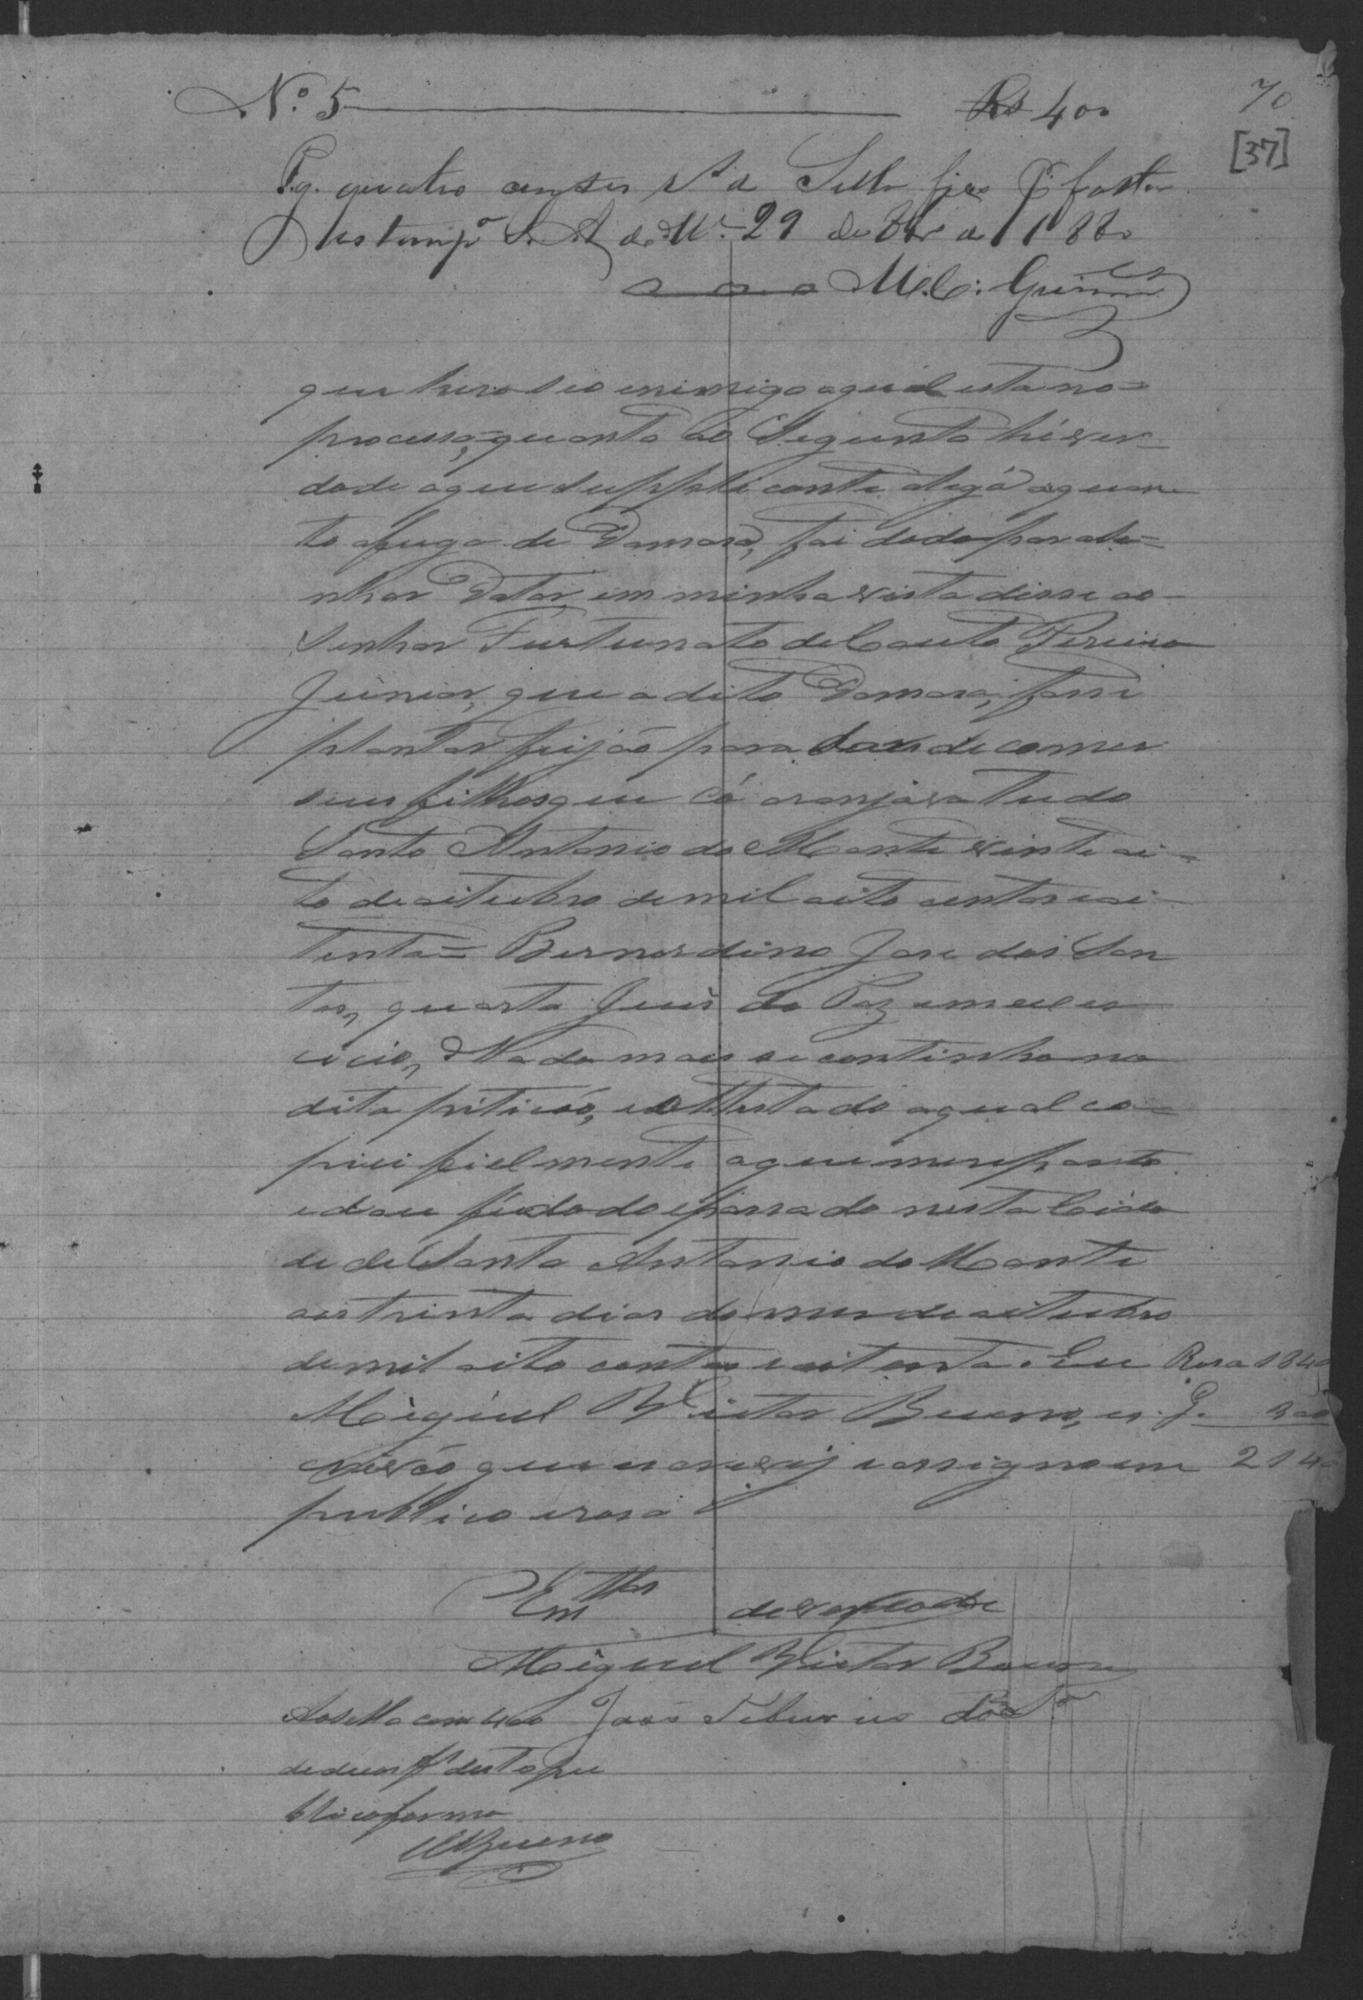 Nº 5 Rs 400
70
[37]
Pg. quatro centos rs. de Sello fixo por falta
d'estampª S. A. do Mte. 29 de 8br de 1880
M. C. Guim.es
que tiverão seo enimigo aquel esta no=
processo, quanto ao Segundo hé ver-
dade o que Supplicante alegá e quan-
to a fuga de Damaso, foi dado par ate=
nhor Vitor em minha vista disse ao
Senhor Furtunato do Couto Pereira
Junior, que o dito Damaso, fosse
plantar feijão para dar de comer
seus filhos que cá aranjava tudo
Santo Antonio do Monte vinte oi-
to de oitubro de mil oito centos e oi-
tenta= Bernardino Jose dos San
tos, quarto Juis de Paz em exer
cicio, Nada mais se continha na
dita pitição, e attestado a qual co=
piei fielmente a que me reporto
e dou fé dado e passado nesta Cida
de de Santo Antonio do Monte
aos trinta dias do mes de oitubro
de mil oito centos e oitenta. Eu Rasa 1840
Miguel Victor Bueno, es. P. 300
crivão que escrevy e assigno em 2140
publico e raso
Em tto de verdade
Miguel Victor Bueno
João Tiburcio
Ao sello com 400
de duas fs desta pu
blica forma
MBueno